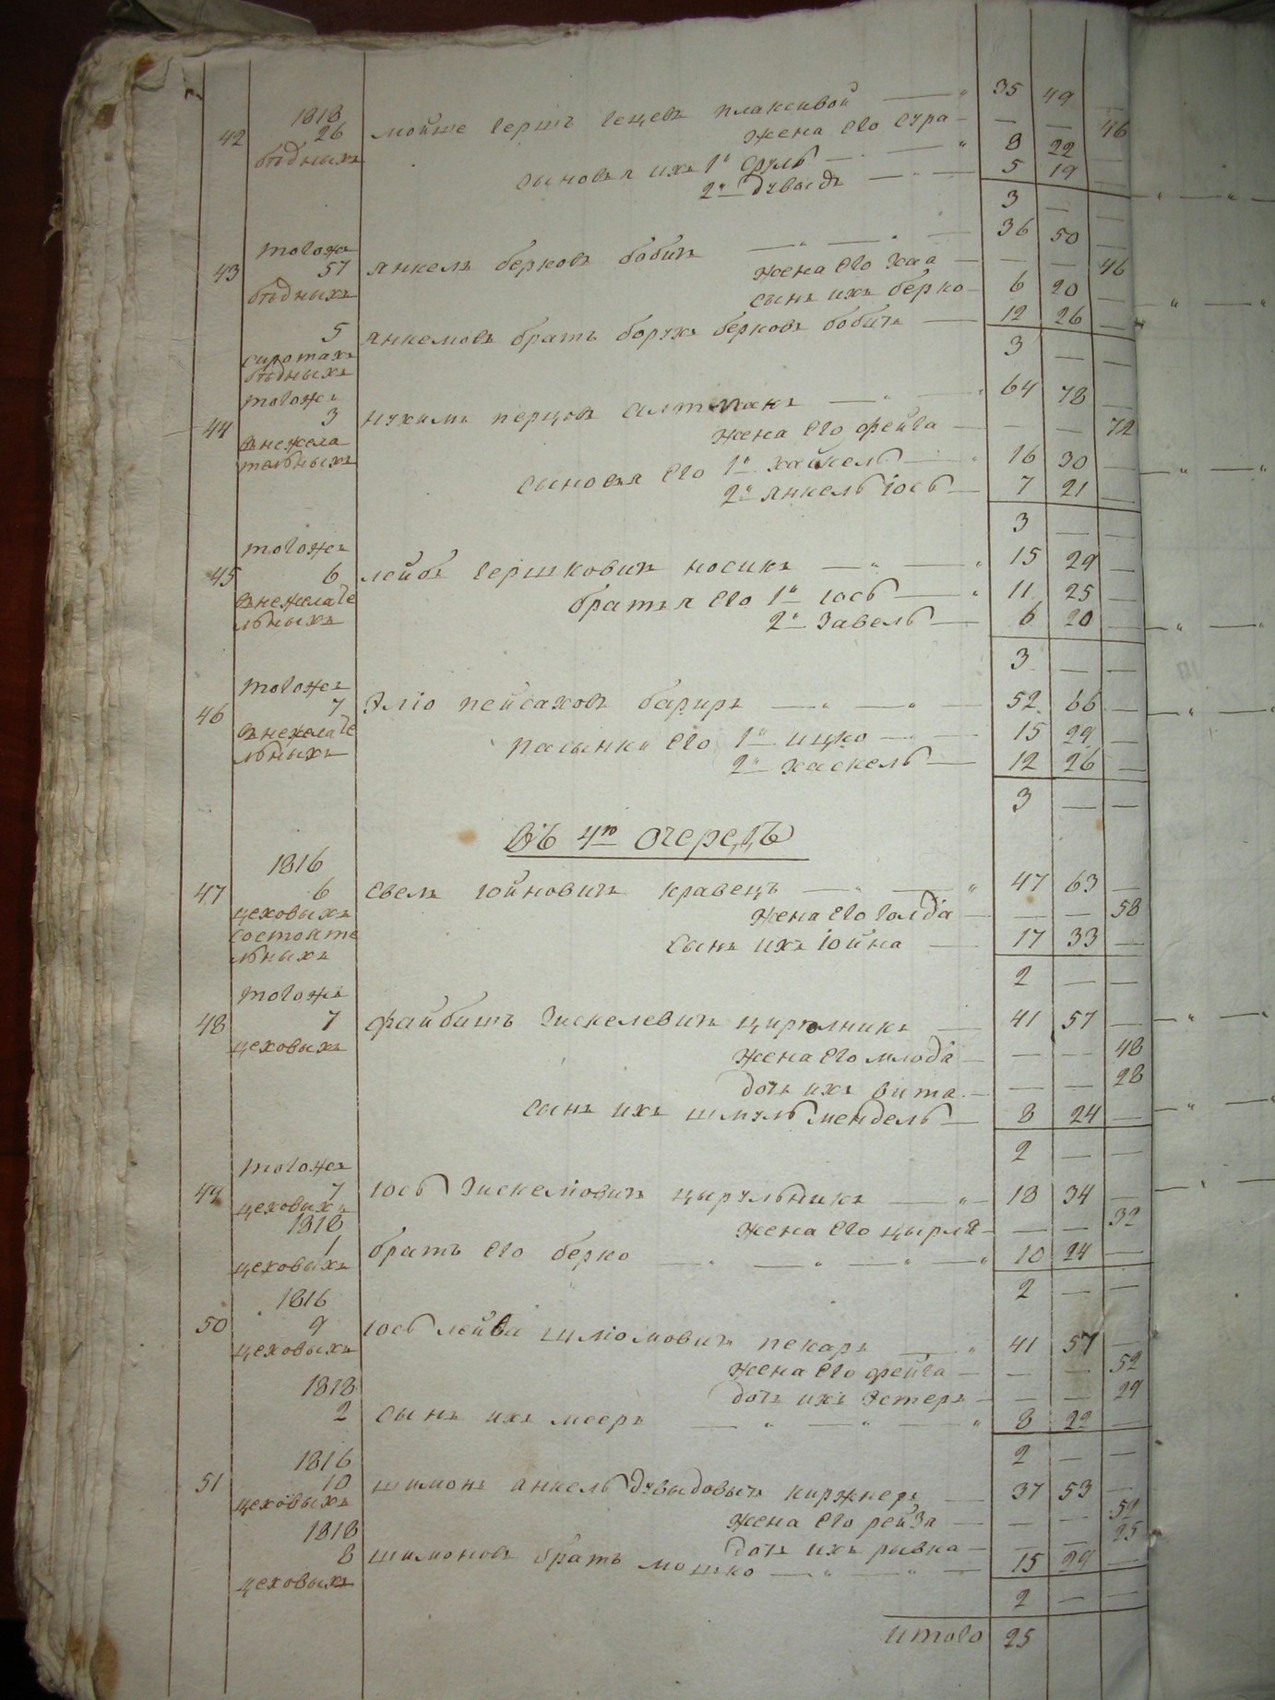 1818 35 49
42 26 мойше гершъ гецевъ плаксивой
бѣдныхъ жена его сура — — 46
сыновья ихъ 1й сруль 8 22
2й дувыдъ 5 19
3 — —
тогожъ 36 50
43 57 янкель берковъ бобичъ
бѣдныхъ жена его хая — — 46
сынъ ихъ берко 6 20
5 янкелювъ братъ борухъ берковъ бобичъ 12 26
сиротахъ 3 — —
бѣдныхъ
тогожъ 64 78
44 3 нухимъ перцовъ
внежела жена его фейга — — 72
тельныхъ сыновья его 1й хайкель 16 30
2й янкель іось 7 21
3 — —
тогожъ
45 6 лейбъ гершковичъ носикъ 15 29
внежелате братья его 1й іось 11 25
льныхъ 2й завель 6 20
3 — —
тогожъ
46 7 эліо пейсаховъ 52 66
внежелате пасынки его 1й ицко 15 29
льныхъ 2й хаскель 12 26
3 — —
Въ 4ю очередь
1816
47 6 евель іойновичъ кравецъ 47 63
цеховыхъ жена его голда — — 58
состояте сынъ ихъ іойна 17 33
льныхъ
2 — —
тогожъ
48 7 файбишъ зискелевичъ цирюлникъ 41 57
цеховыхъ жена его млода — — 48
дочь ихъ вита — — 28
сынъ ихъ шмуль мендель 8 24
2 — —
тогожъ
49 7 іось зискелювичъ цырульникъ 18 34
цеховыхъ
1818 жена его цырля — — 32
1 братъ его берко 10 24
цеховыхъ
2 — —
1816
50 9 іось лейба шліомовичъ пекаръ 41 57
цеховыхъ жена его фейга — — 52
1818 дочь ихъ эстеръ — — 29
2 сынъ ихъ мееръ 8 22
2 — —
1816
51 10 шимонъ анкель дувыдовичъ 37 53
цеховыхъ жена его рейза — — 52
1818 дочь ихъ ривка — — 25
8 шимоновъ братъ мошко 15 29
цеховыхъ
2 — —
итого 25